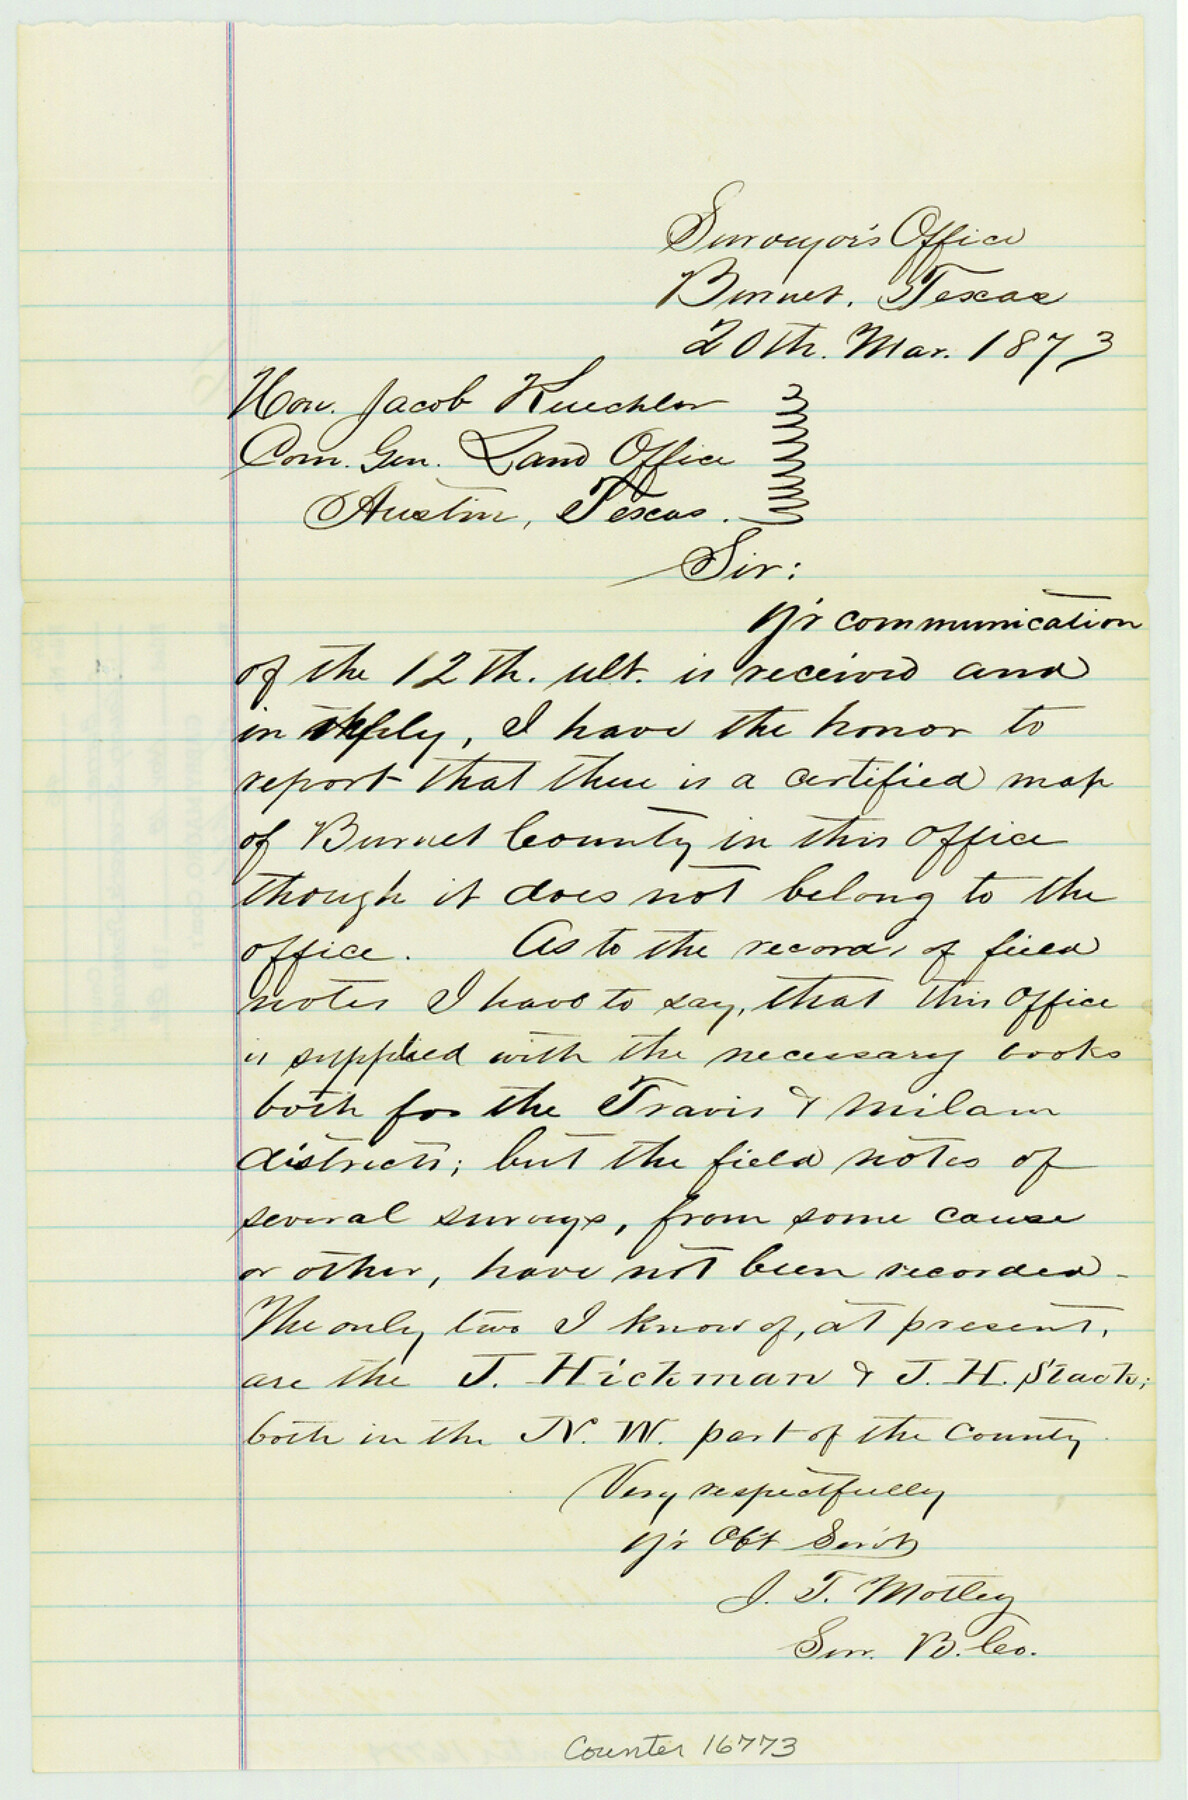 Surveyor's Office
Burnet, Texas
20th. Mar. 1873
Hon. Jacob Kuechler
Com. Gen. Land Office
Austin, Texas.
Sir:
Y'r communication
of the 12th. ult. is received and
in reply, I have the honor to
report that there is a certified map
of Burnet County in this office
though it does not belong to the
office. As to the record, of field
notes I have to say, that this office
is supplied with the necessary books
both for the Travis & Milam
districts; but the field notes of
several surveys, from some cause
or other, have not been recorded -
The only two I know of, at present,
are the J. Hickman & J. H. Stack;
both in the N. W. part of the County
Very respectfully
Y'r Obt Serv't
J. T. Motley
Sur. B. Co.
Counter 16773